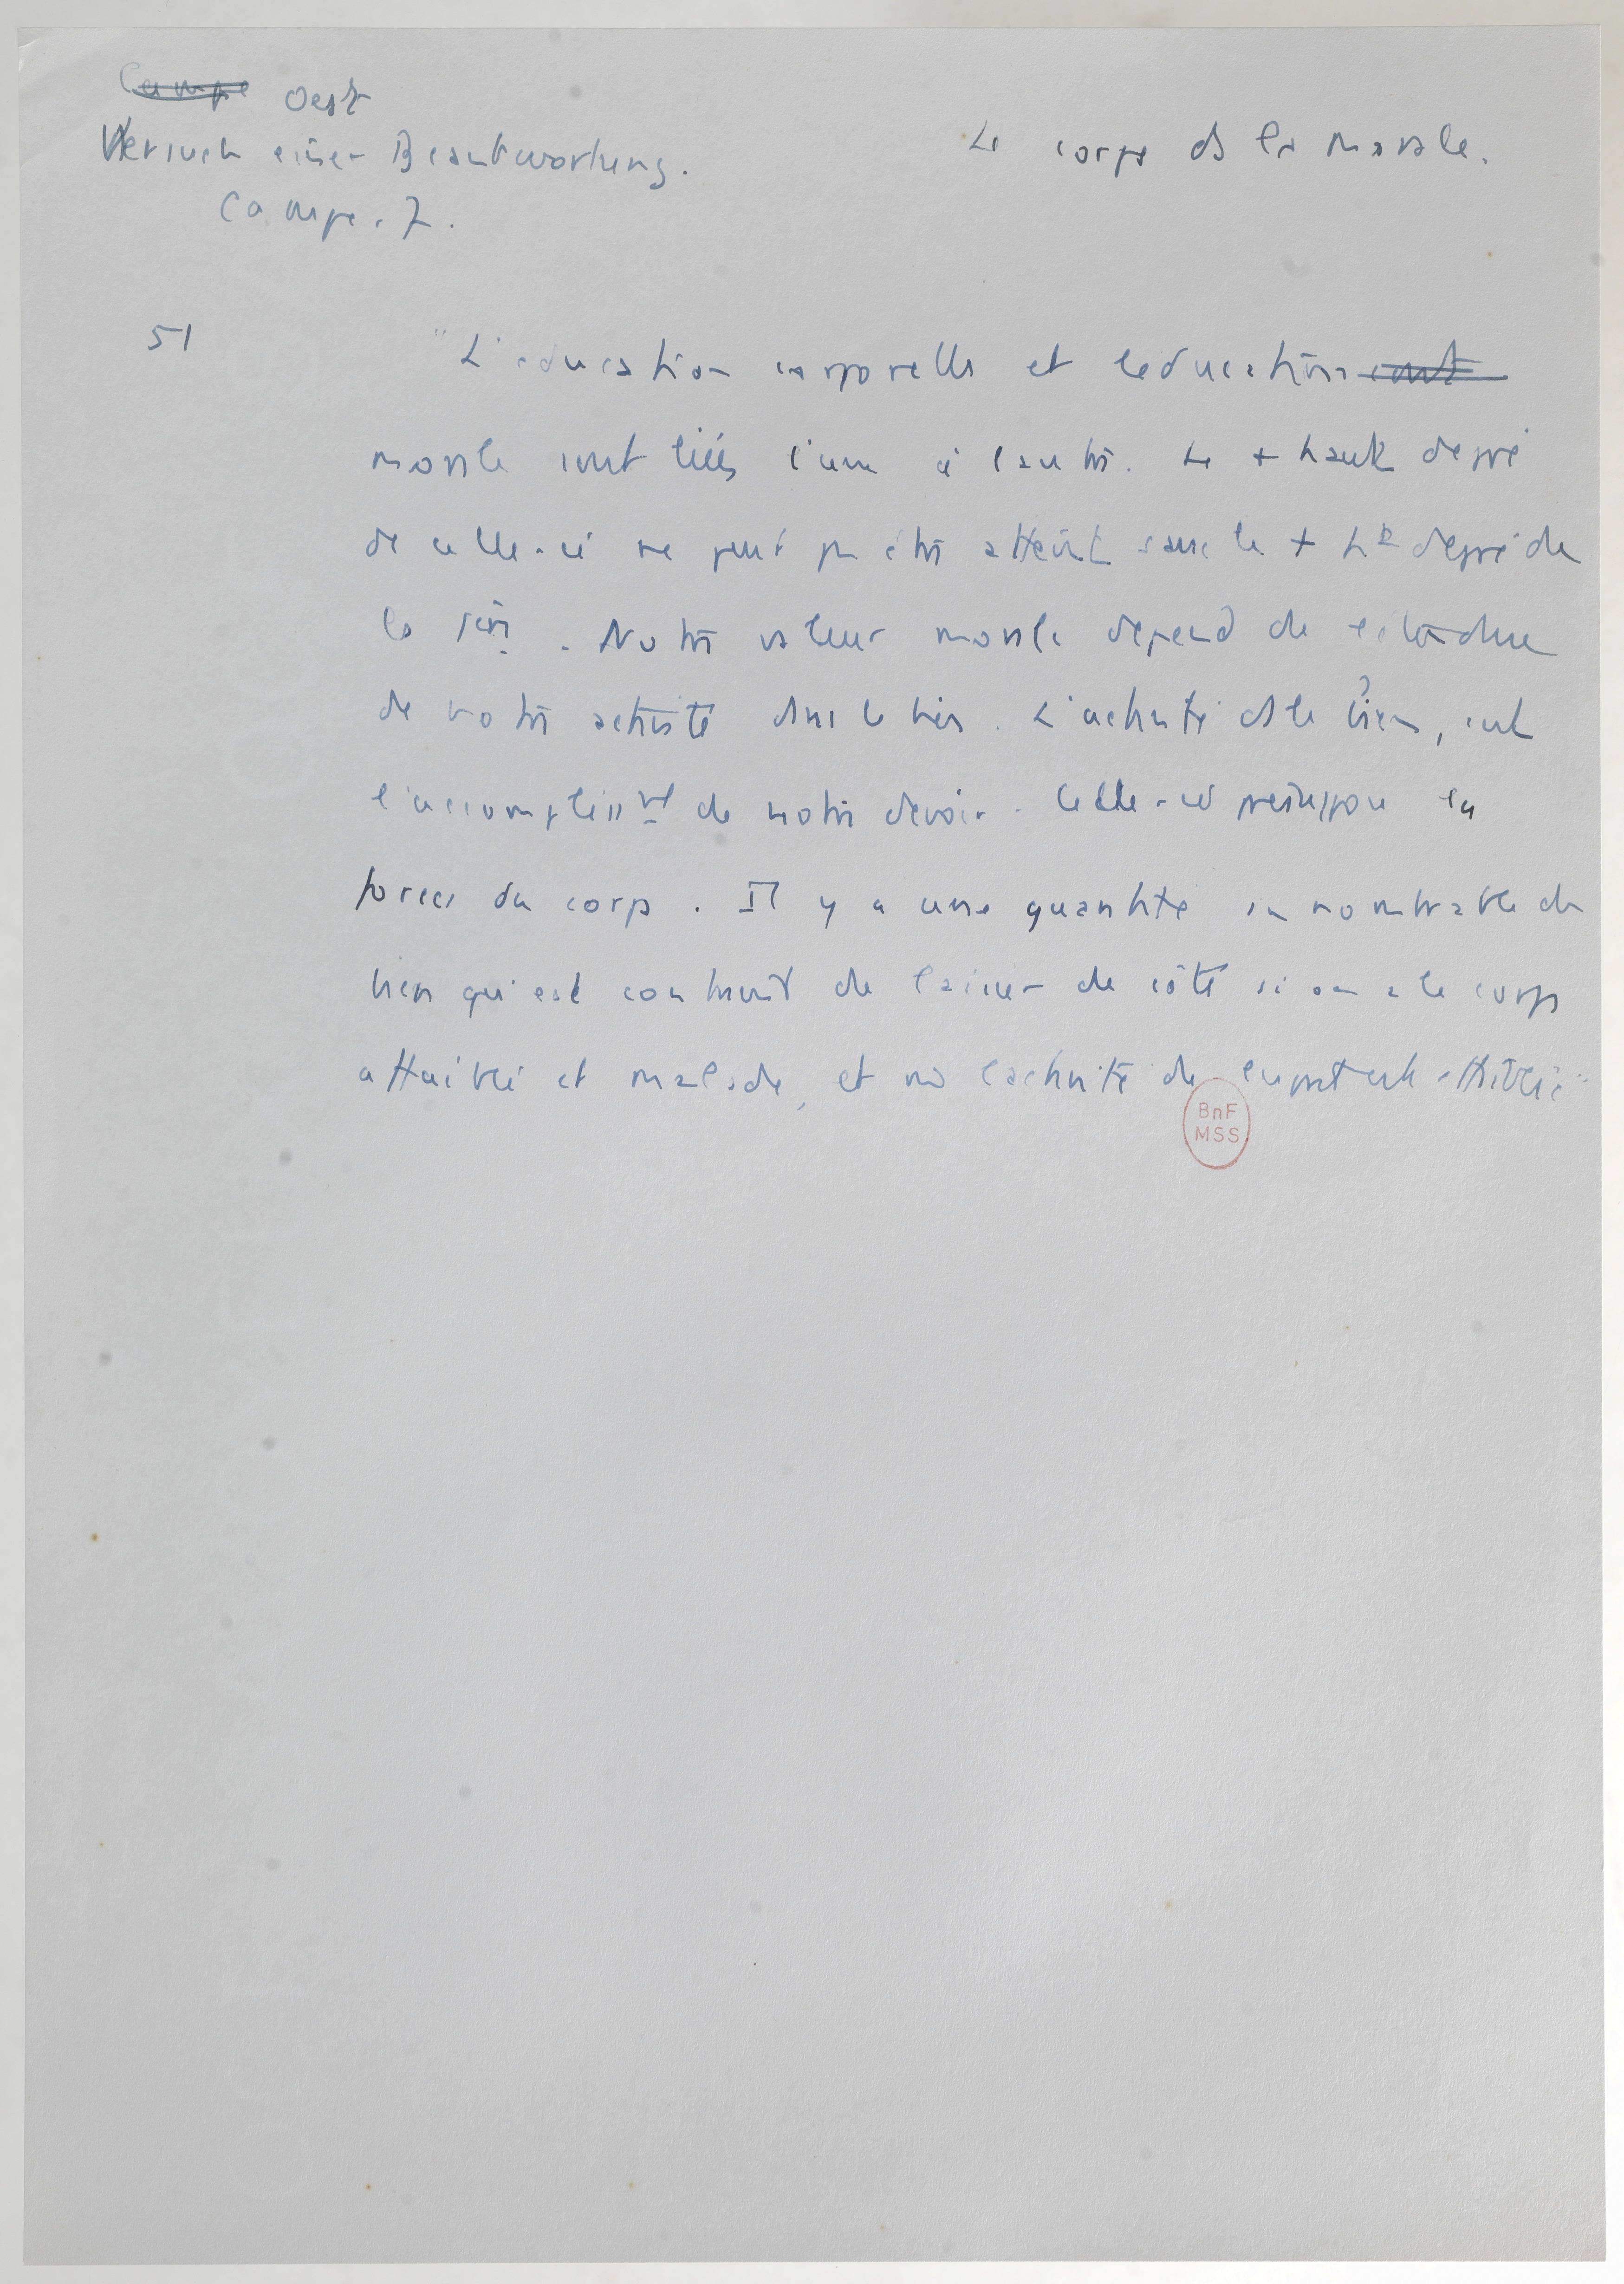 ~~Campe~~ Oest
Versuch einer Beantwortung.
Campe. 7.
Le corps ds la morale.
51
"L'éducation corporelle et l'éducation ~~sont~~
morale sont liées l'une à l'autre. Le + haut degré
de celle-ci ne peut pas être atteint sans le + ht degré de
la 1ère. Notre valeur morale dépend de l'étendue
de notre activité dans le bien. L'activité ds le bien, c'est
l'accomplisst de notre devoir. Celle-ci présuppose la
force du corps. Il y a une quantité innombrable de
bien qu'on est contraint de laisser de côté si on a le corps
affaibli et malade, et où l'activité de l'esprit est affaiblie"
BnF
MSS